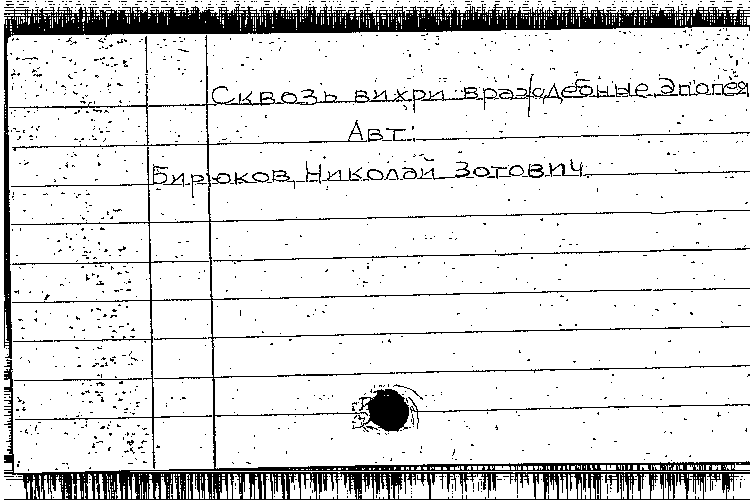 Сквозь вихри враждебные. Эпопея
Авт:
Бирюков, Николай Зотович.